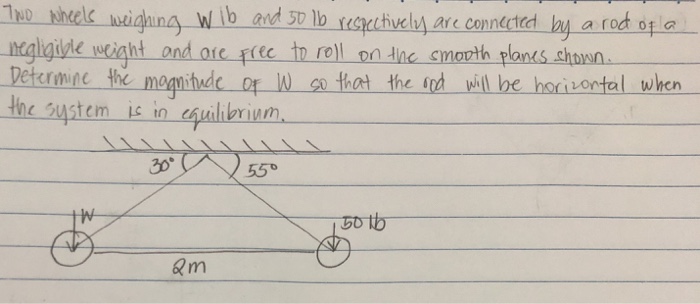 Two wheels weighing W ib and 50 lb respectively are connected by a rod of a
negligible weight and are free to roll on the smooth planes shown.
Determine the magnitude of W so that the rod will be horizontal when
the system is in equilibrium.
30° 55°
W 50 lb
2m